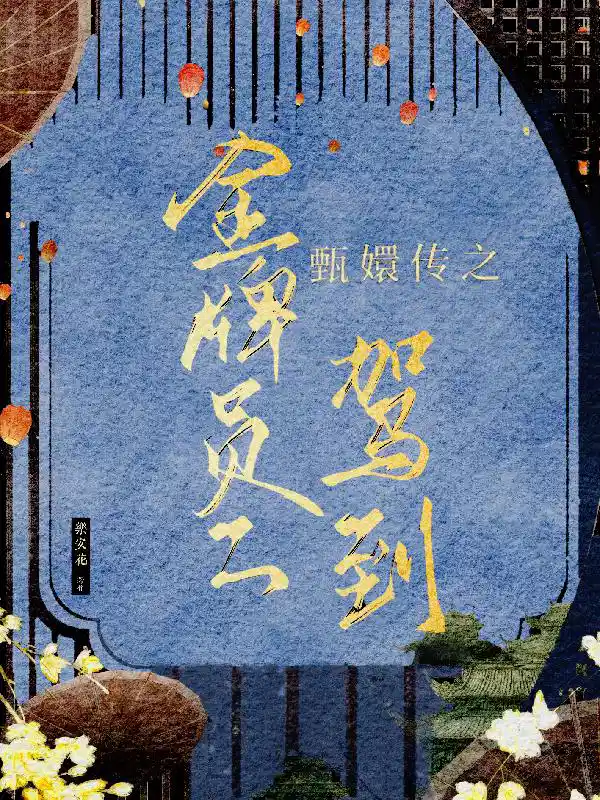 甄嬛传之
金牌员工
驾到
樂安花